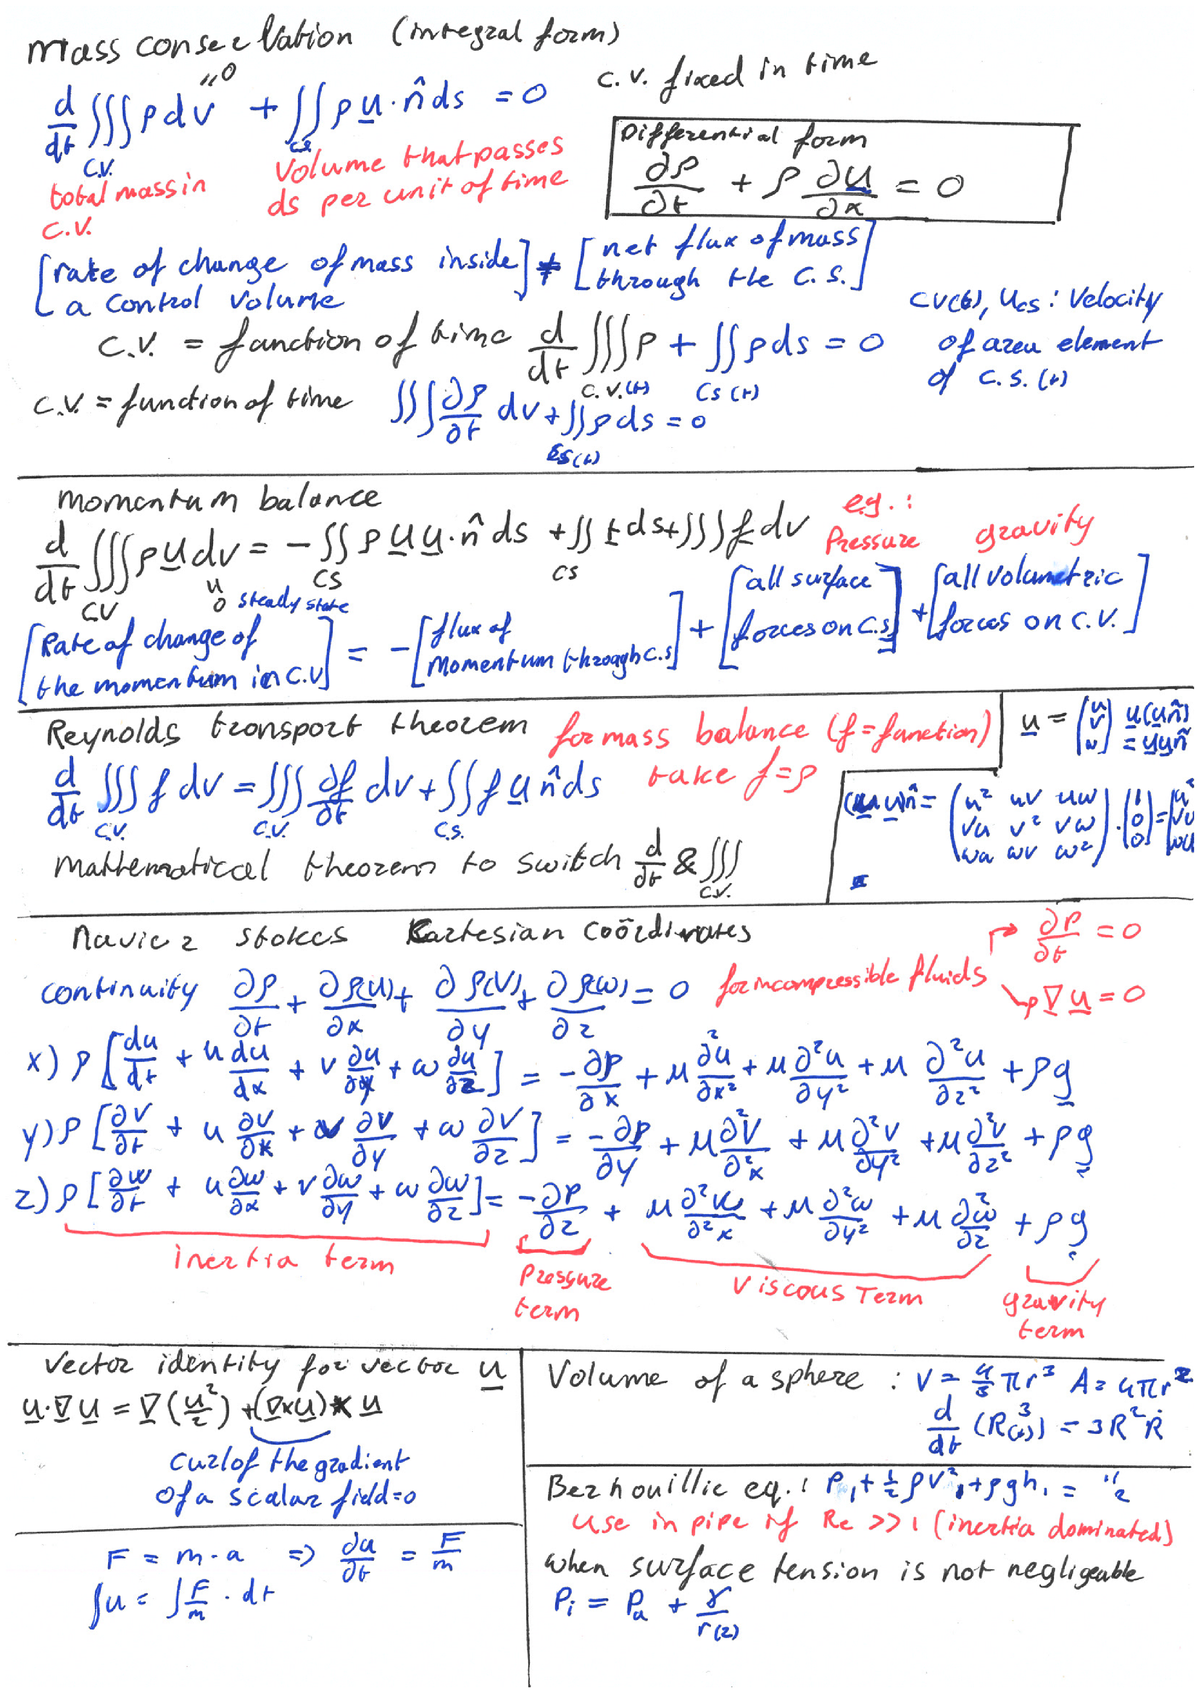 Mass conservation (integral form)
C.V. fixed in time
d/dt ∭ ρ dv "0 + ∬ ρ u·n̂ ds = 0
C.V. C.S.
total mass in C.V.
Volume that passes ds per unit of time
Differential form
∂ρ/∂t + ρ ∂u/∂x = 0
[rate of change of mass inside a control volume] ≠ [net flux of mass through the C.S.]
C.V. = function of time d/dt ∭ ρ + ∬ ρ ds = 0
C.V.(t) CS(t)
CV(t), u_cs : Velocity of area element of C.S.(t)
C.V. = function of time ∭ ∂ρ/∂t dv + ∬ ρ ds = 0
CS(t)
momentum balance
d/dt ∭ ρ u dv = - ∬ ρ u u·n̂ ds + ∬ t ds + ∭ f dv
CV CS CS
" 0 steady state
e.g. :
Pressure gravity
[Rate of change of the momentum in C.V] = - [flux of momentum through C.S] + [all surface forces on C.S] + [all volumetric forces on C.V.]
Reynolds transport theorem for mass balance (f = function)
take f = ρ
d/dt ∭ f dv = ∭ ∂f/∂t dv + ∬ f u n̂ ds
C.V. C.V. C.S.
mathematical theorem to switch d/dt & ∭
C.V.
u = (u v w) u(u n̂) = u u n̂
(u u)n̂ = (u² uv uw
vu v² vw
wu wv w²) · (1 0 0) = (u² vu wu
Navier stokes Cartesian coördinates
continuity ∂ρ/∂t + ∂ρ(u)/∂x + ∂ρ(v)/∂y + ∂ρ(w)/∂z = 0 for incompressible fluids
→ ∂ρ/∂t = 0
↘ ρ ∇ u = 0
x) ρ [du/dt + u du/dx + v ∂u/∂y + w ∂u/∂z] = -∂p/∂x + μ ∂²u/∂x² + μ ∂²u/∂y² + μ ∂²u/∂z² + ρg
y) ρ [∂v/∂t + u ∂v/∂x + v ∂v/∂y + w ∂v/∂z] = -∂p/∂y + μ ∂²v/∂²x + μ ∂²v/∂y² + μ ∂²v/∂z² + ρg
z) ρ [∂w/∂t + u ∂w/∂x + v ∂w/∂y + w ∂w/∂z] = -∂p/∂z + μ ∂²w/∂²x + μ ∂²w/∂y² + μ ∂²w/∂z + ρg
inertia term
Pressure term
Viscous Term
gravity term
Vector identity for vector u
u·∇u = ∇(u²/2) + (∇xu) x u
curl of the gradient
of a scalar field = 0
F = m·a => ∂u/∂t = F/m
∫u = ∫ F/m · dt
Volume of a sphere : V = 4/3 πr³ A = 4πr²
d/dt (R(t)³) = 3R²Ṙ
Bernouillie eq. : P₁ + ½ρV²₁ + ρgh₁ = "₂
use in pipe if Re >> 1 (inertia dominated)
when surface tension is not negligeable
Pᵢ = Pₐ + γ/r(z)